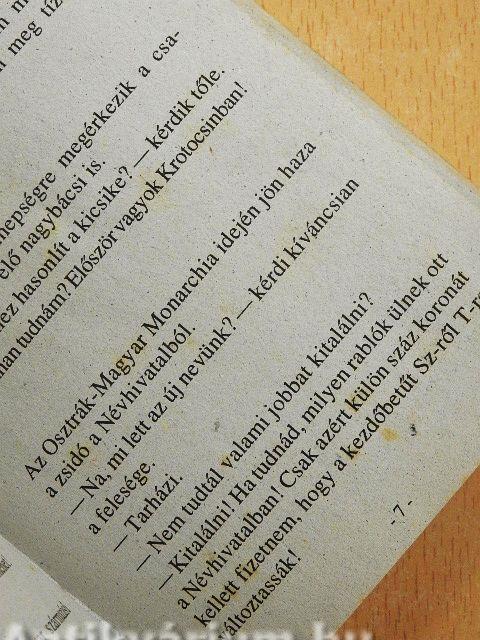 meg tíz
nepségre megérkezik a csa-
elő nagybácsi is.
hez hasonlít a kicsike? — kérdik tőle.
tudnám? Először vagyok Krotocsinban!
Az Osztrák-Magyar Monarchia idején jön haza
a zsidó a Névhivatalból.
— Na, mi lett az új nevünk? — kérdi kíváncsian
a felesége.
— Tarházi.
— Nem tudtál valami jobbat kitalálni?
— Kitalálni! Ha tudnád, milyen rablók ülnek ott
a Névhivatalban! Csak azért külön száz koronát
kellett fizetnem, hogy a kezdőbetűt Sz-ről T-re
változtassák!
- 7 -
Antikvárium.hu